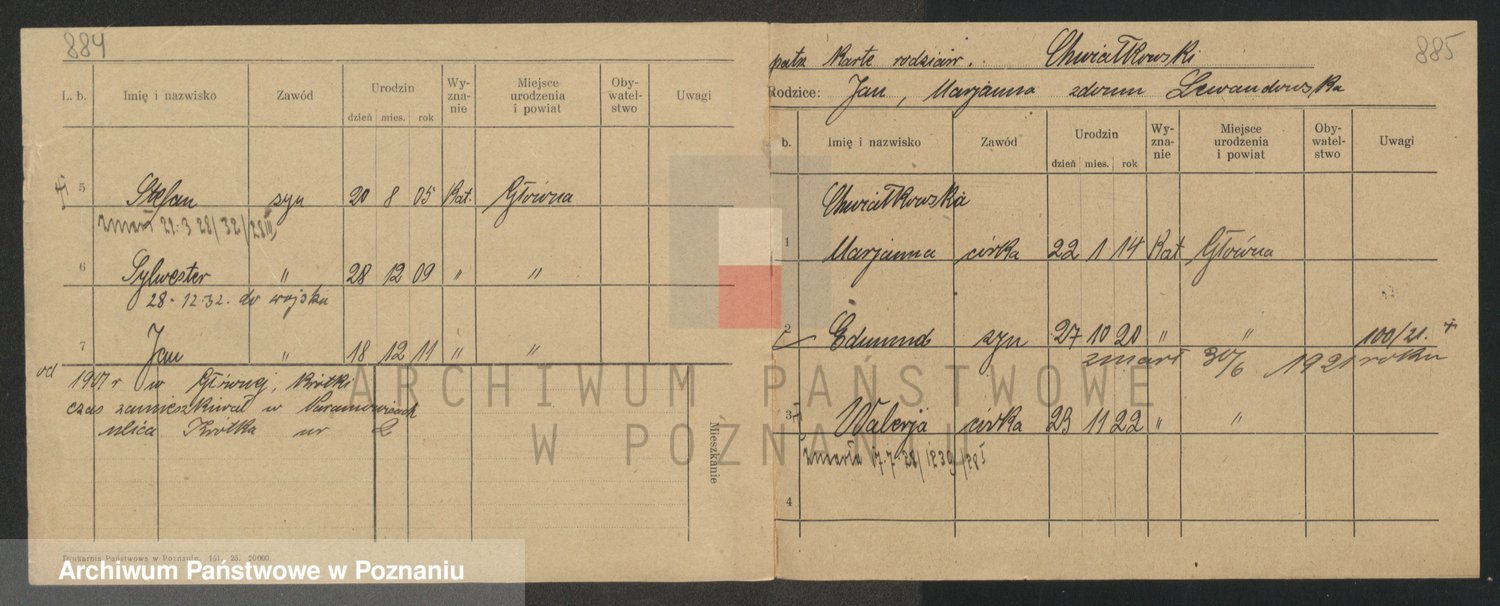 884
L. b.
Imię i nazwisko
Zawód
Urodzin
dzień mies. rok
Wy-
zna-
nie
Miejsce
urodzenia
i powiat
Oby-
watel-
stwo
Uwagi
5 Stefan syn 20 8 05 Kat. Główna
zmarł 21.3 28/32/28III
6 Sylwester " 28 12 09 " "
28-12.32. do wojska
7 Jan " 18 12 11 " "
od 1907 r w Głównej, krótki
czas zamieszkiwał w
ulica Krótka nr 2
Mieszkanie
Drukarnia Państwowa w Poznaniu, 151, 25. 20000.
885
patrz Karte rodziców. Chwiałkowski
Rodzice: Jan, Marjanna zdomu Lewandowska
b.
Imię i nazwisko
Zawód
Urodzin
dzień mies. rok
Wy-
zna-
nie
Miejsce
urodzenia
i powiat
Oby-
watel-
stwo
Uwagi
Chwiałkowska
1 Marjanna córka 22 1 14 Kat Główna
2 Edmund syn 27 10 20 " " 100/21. +
zmarł 30/6 1921 roku
3 Walerja córka 23 11 22 " "
zmarła 17.7.28/1239/28I
4
ARCHIWUM PAŃSTWOWE
W POZNANIU
Archiwum Państwowe w Poznaniu